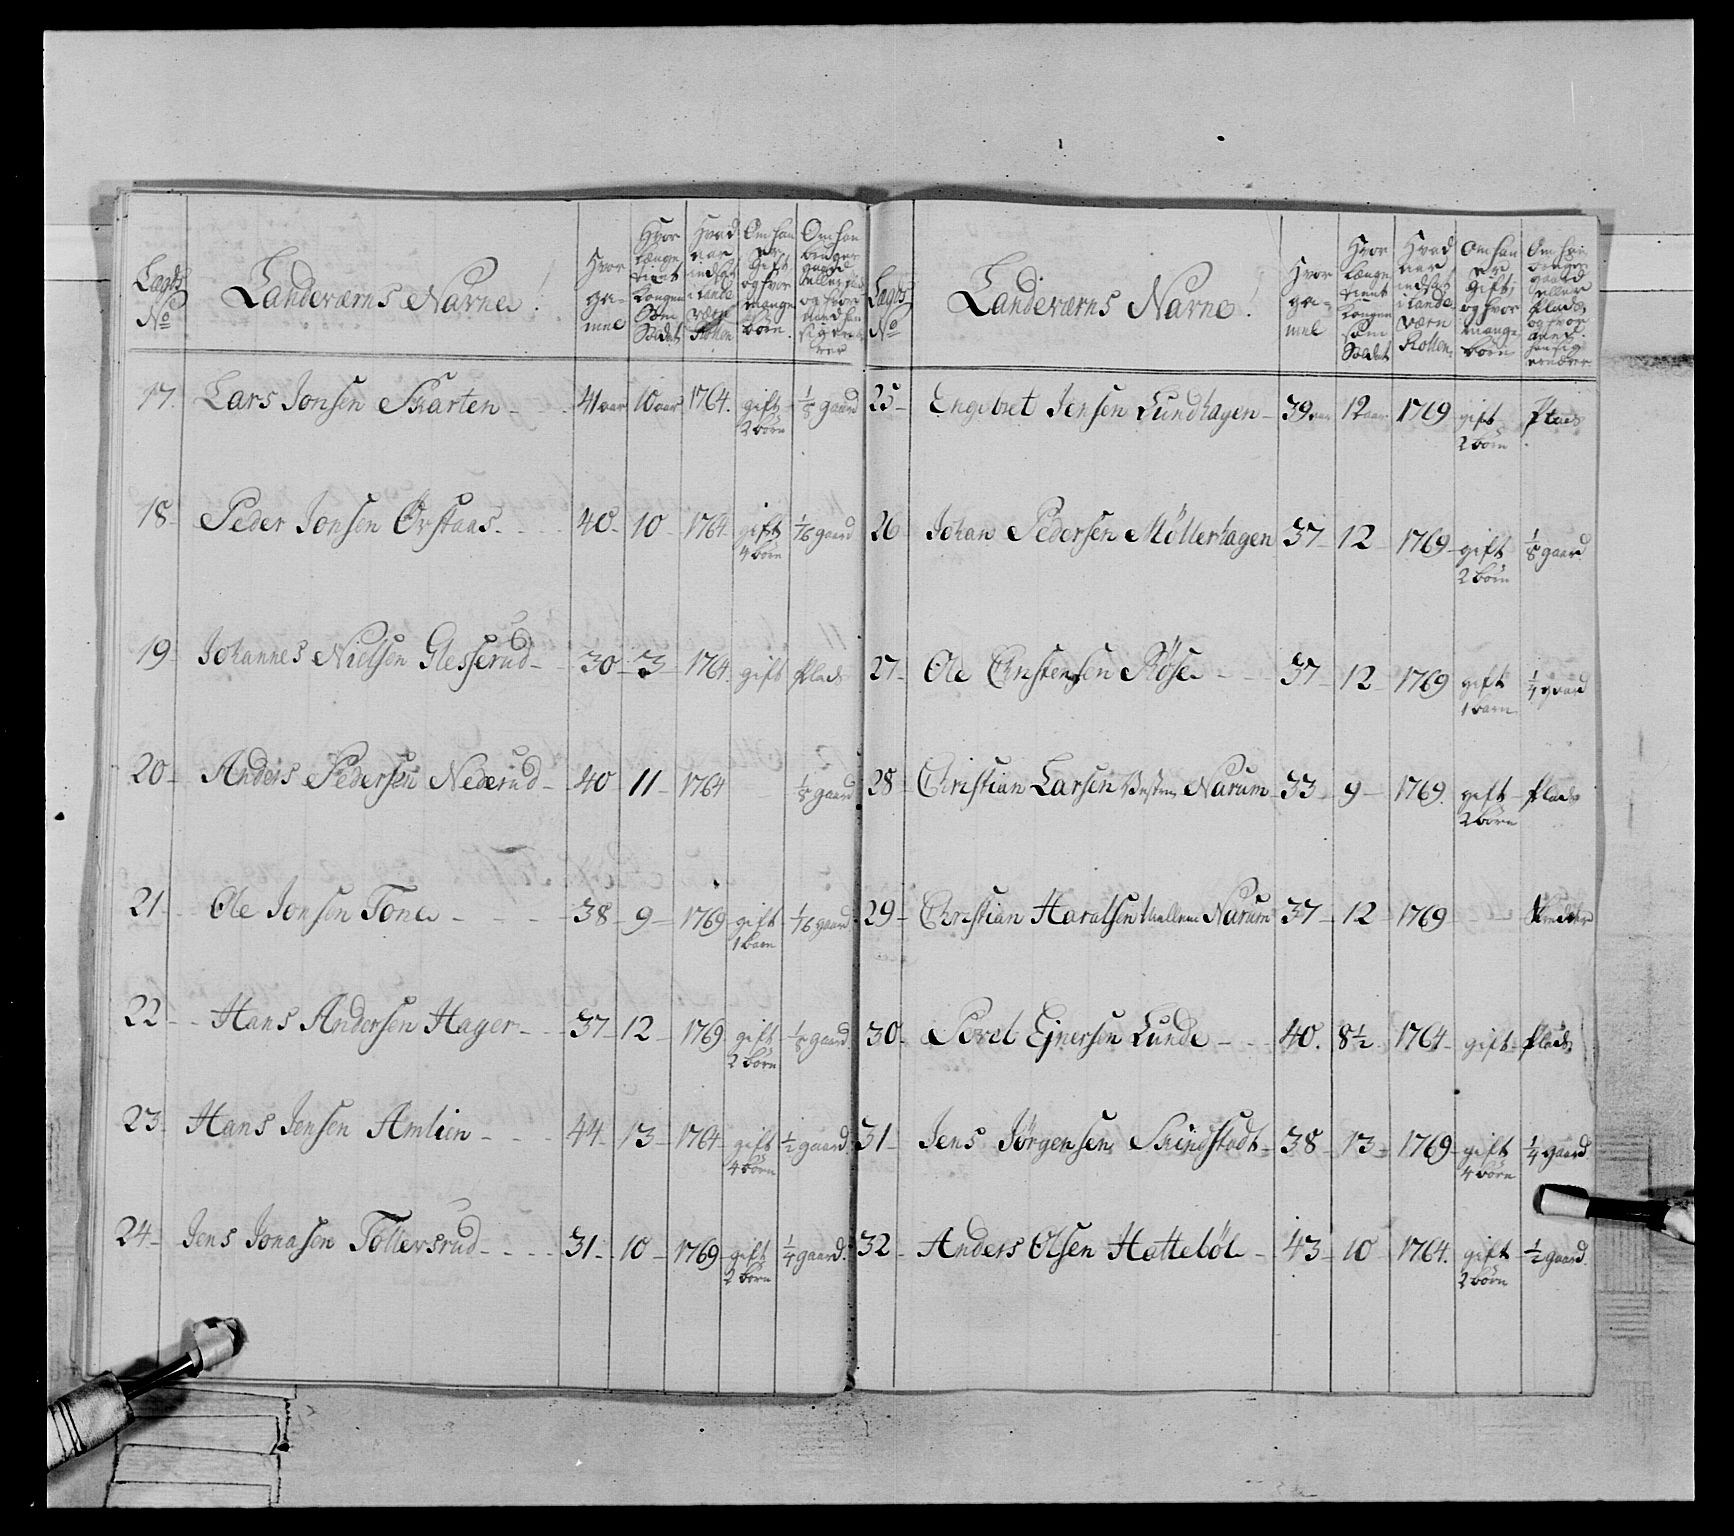 Lægds No
Landeværns Navne!
Hvor gamle
Hvor længe tient Kongen Som Soldat
Hvad aar indsat i Lande værn Rollen
Om han er Gift og hvor mange børn
Om han bruger gaard eller
17. Lars Jonsen Skarten - 41 aar 10 aar 1764. gift 1/8 gaard
2 børn
18 Peder Jonsen Ørstaas - 40 - 10 - 1764 gift 1/16 gaard
4 børn
19 Johannes Nielsen Glesserud - 30 - 3 - 1764 gift Plads
20 - Anders Pedersen Nederud - 40 11 - 1764 1/8 gaard
21 - Ole Jonsen Tone - 38 - 9 - 1769 gift 1/16 gaard
1 barn
22 - Hans Andersen Hager - 37 - 12 - 1769 gift 1/8 gaard
2 børn
23 Hans Jensen Amlien - 44 - 13 - 1764 gift 1/2 gaard
4 børn
24 - Jens Jonasen Tollersrud - 31 - 10 - 1769 gift 1/4 gaard.
2 børn
Lægds No
Landeværns Navne!
Hvor gamle
Hvor længe tient Kongen som Soldat
Hvad aar indsat i Lande værn Rollen
Om han er Gift, og hvor mange børn
Om han bruger gaard eller Plads og hvor
25 - Engebret Jensen Lundhagen - 39 aar 12 aar 1769 gift Plads
2 børn
26 Johan Pedersen Möllerhagen 37 - 12 - 1769 - gift 1/8 gaard
2 børn
27 - Ole Christensen Röse - 37 - 12 - 1769 gift 1/4 gaard
1 barn
28 Christian Larsen Narum - 33 - 9 - 1769. gift - Plads
2 børn
29 - Christian Haralsen Narum 37 - 12 - 1769
30 - Ejnersen Lunde - 40. 8½ 1764 - gift - Plads
31 - Jens Jörgensen Skindstadt - 38 - 13 - 1769 - gift 1/4 gaard.
4 børn
32 - Anders Olsen Hatteböl - 43 - 10 - 1764. gift 1/2 gaard.
2 børn